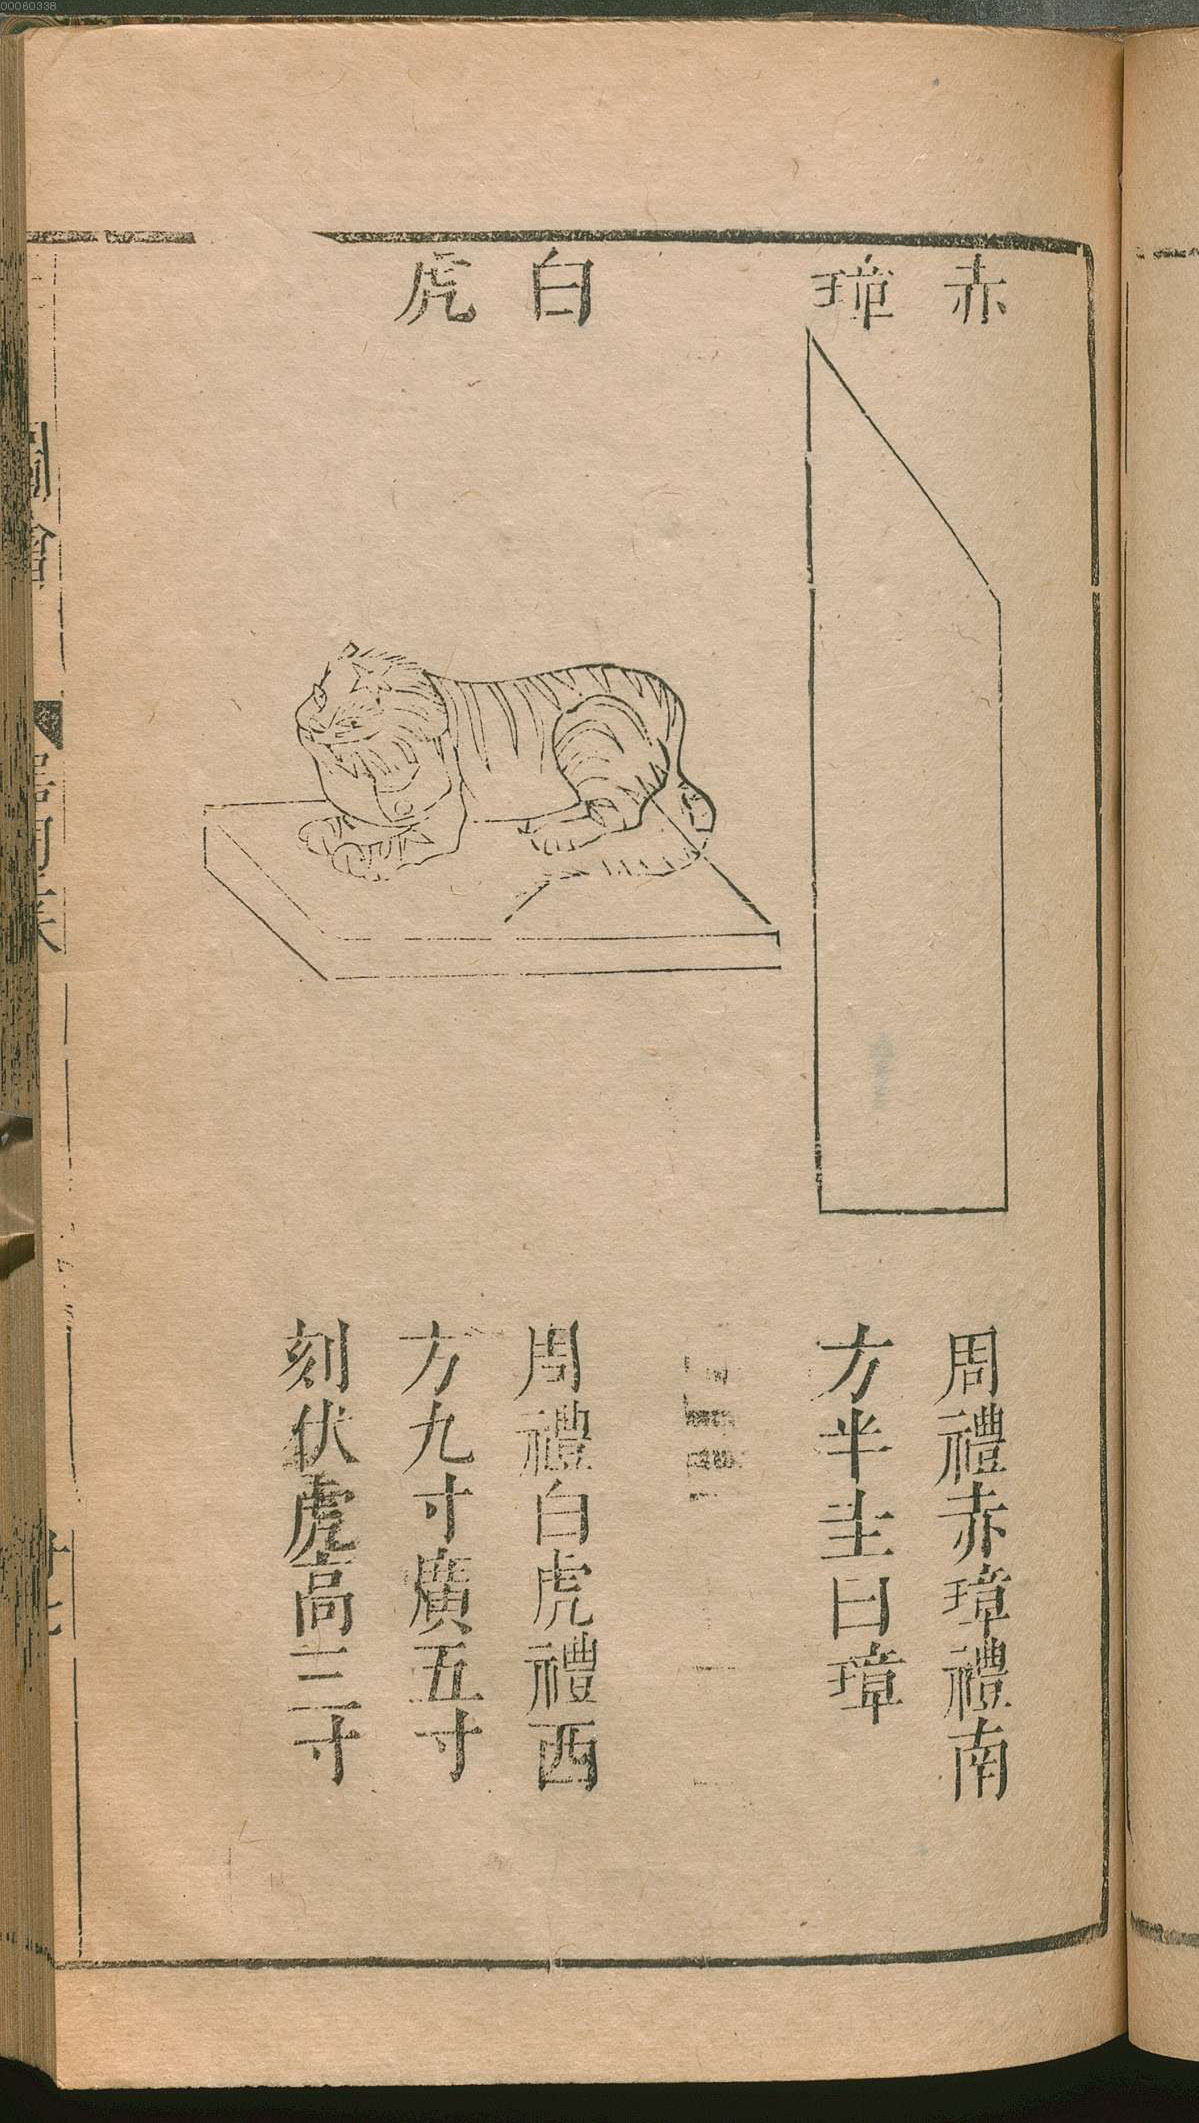 00060338
赤璋
周禮赤璋禮南
方半圭曰璋
白虎
周禮白虎禮西
方九寸廣五寸
刻伏虎高三寸
圖會